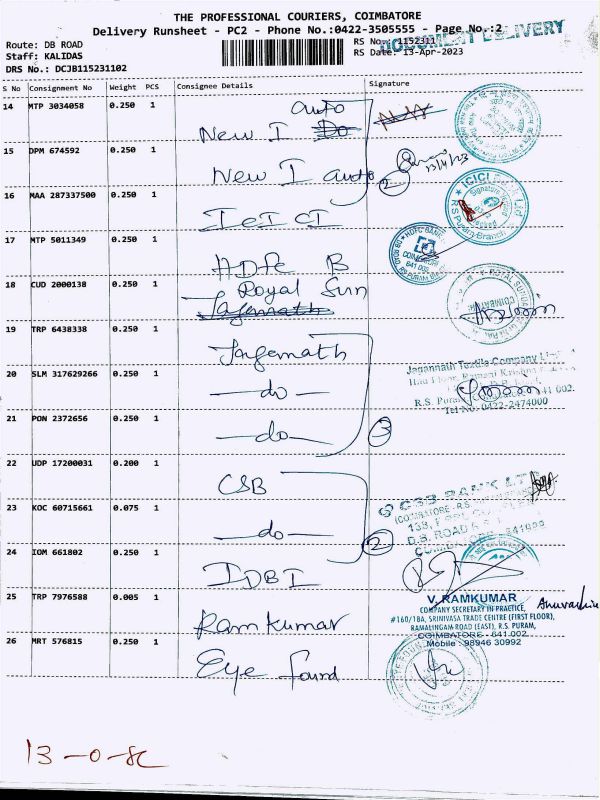 THE PROFESSIONAL COURIERS, COIMBATORE
Delivery Runsheet - PC2 - Phone No.:0422-3505555 - Page No.:2
DOCUMENT DELIVERY
Route: DB ROAD
RS No.: 1152311
Staff: KALIDAS
RS Date: 13-Apr-2023
DRS No.: DCJB115231102
S No Consignment No Weight PCS Consignee Details Signature
14 MTP 3034058 0.250 1
auto
New I Do
15 DPM 674592 0.250 1
13/4/23
New I auto 2
16 MAA 287337500 0.250 1
ICICI
ICICI Bank Ltd
R S Puram Branch
17 MTP 5011349 0.250 1
HDFC B
HDFC BANK
COIMBATORE
641 002
18 CUD 2000138 0.250 1
Royal Sun
Jagernath
COIMBATORE
19 TRP 6438338 0.250 1
Jagernath
Jagannath Textile Company
20 SLM 317629266 0.250 1
do
R.S. Puram
Tel No: 0422-2474000
21 PON 2372656 0.250 1
do 3
22 UDP 17200031 0.200 1
CSB
CSB BANK LTD
COIMBATORE - R.S.
23 KOC 60715661 0.075 1
do
D.B. ROAD
2
24 IOM 661802 0.250 1
IDBI
25 TRP 7976588 0.005 1
Ramkumar
V. RAMKUMAR
COMPANY SECRETARY IN PRACTICE,
#160/18A, SRINIVASA TRADE CENTRE (FIRST FLOOR),
RAMALINGAM ROAD (EAST), R.S. PURAM,
COIMBATORE - 641 002.
Mobile : 98946 30992
26 MRT 576815 0.250 1
Eye found
13-0-8C